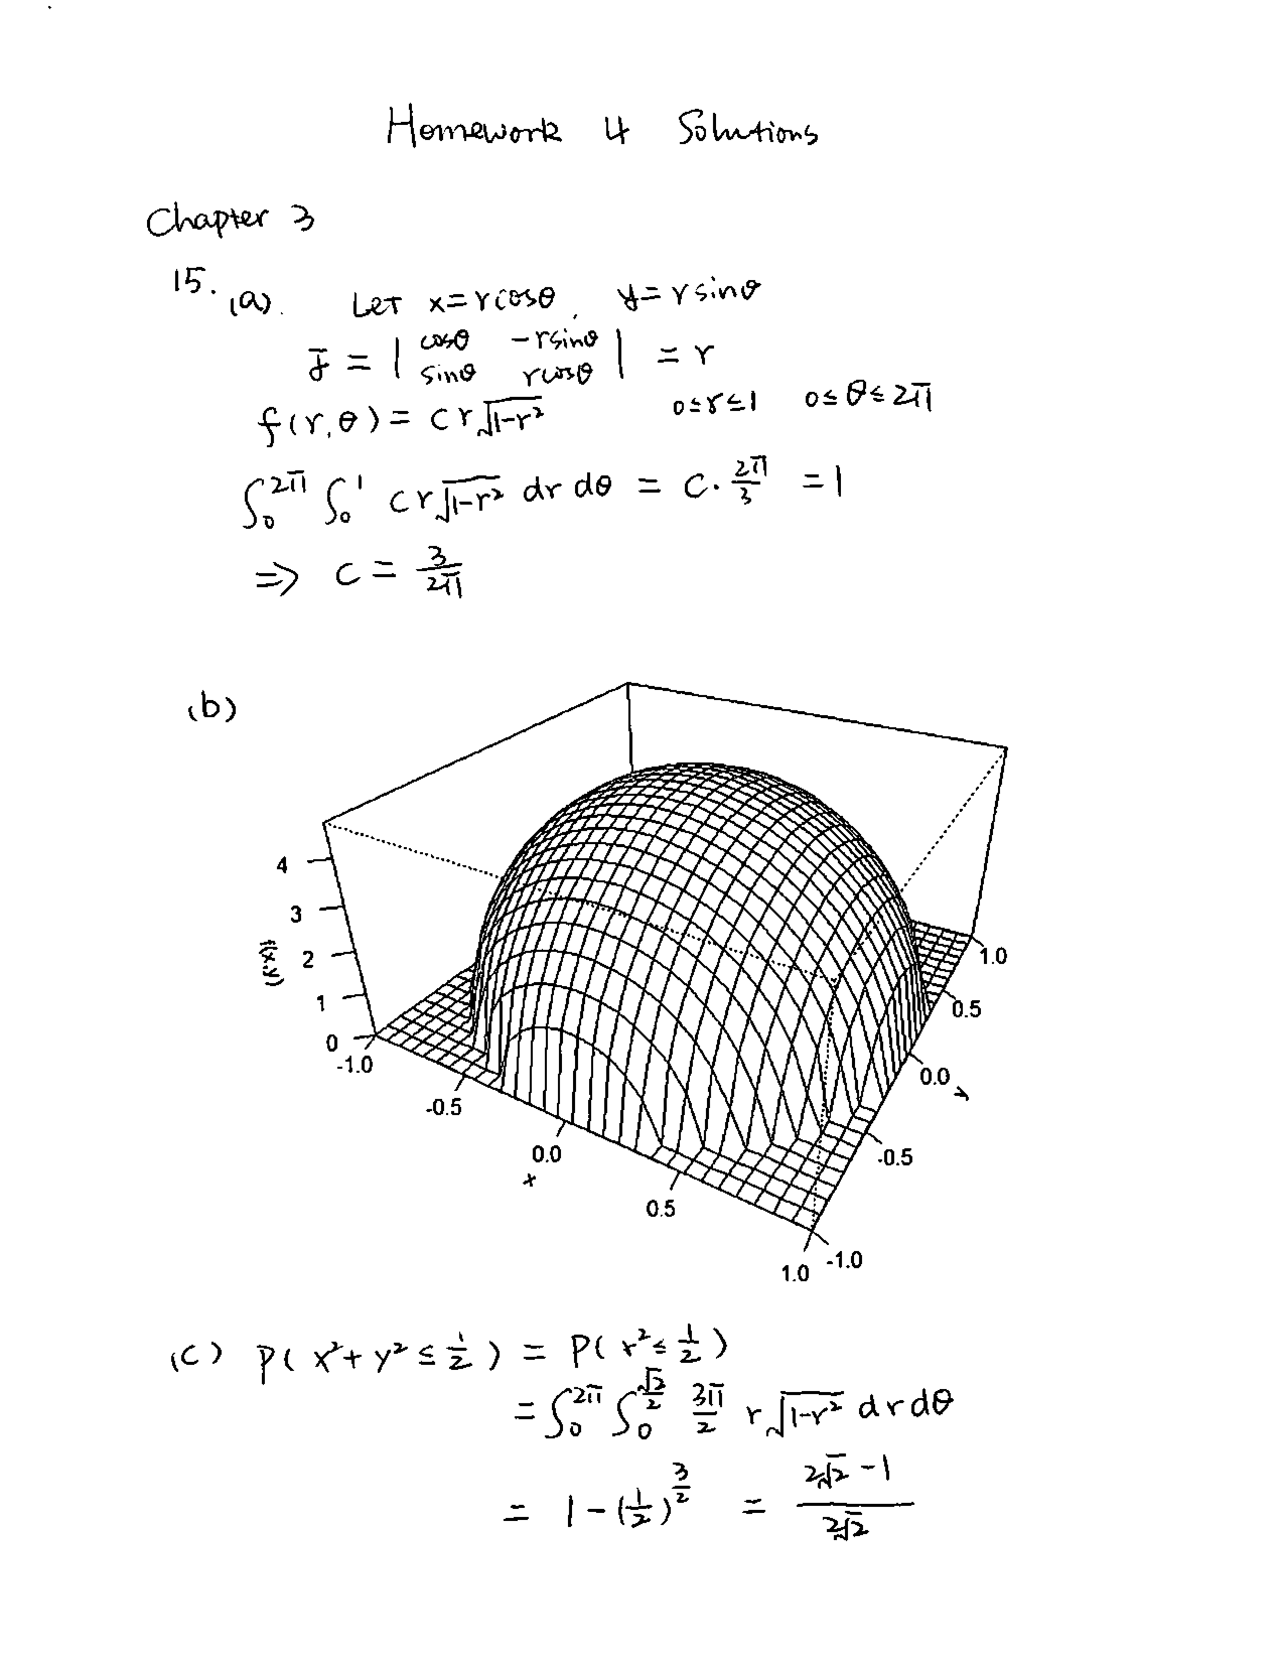 Homework 4 Solutions
Chapter 3
15. (a). Let x=rcosθ, y=rsinθ
J = | cosθ -rsinθ |
| sinθ rcosθ | = r
f(r,θ) = cr√(1-r²) 0≤r≤1 0≤θ≤2π
∫₀^2π ∫₀^1 cr√(1-r²) dr dθ = c·2π/3 = 1
=> c = 3/2π
(b)
4
3
2
1
0
f(x,y)
-1.0
-0.5
0.0
0.5
1.0
x
-1.0
-0.5
0.0
0.5
1.0
y
(c) P(x²+y²≤1/2) = P(r²≤1/2)
= ∫₀^2π ∫₀^(√2/2) 3π/2 r√(1-r²) dr dθ
= 1-(1/2)^(3/2) = (2√2-1)/(2√2)